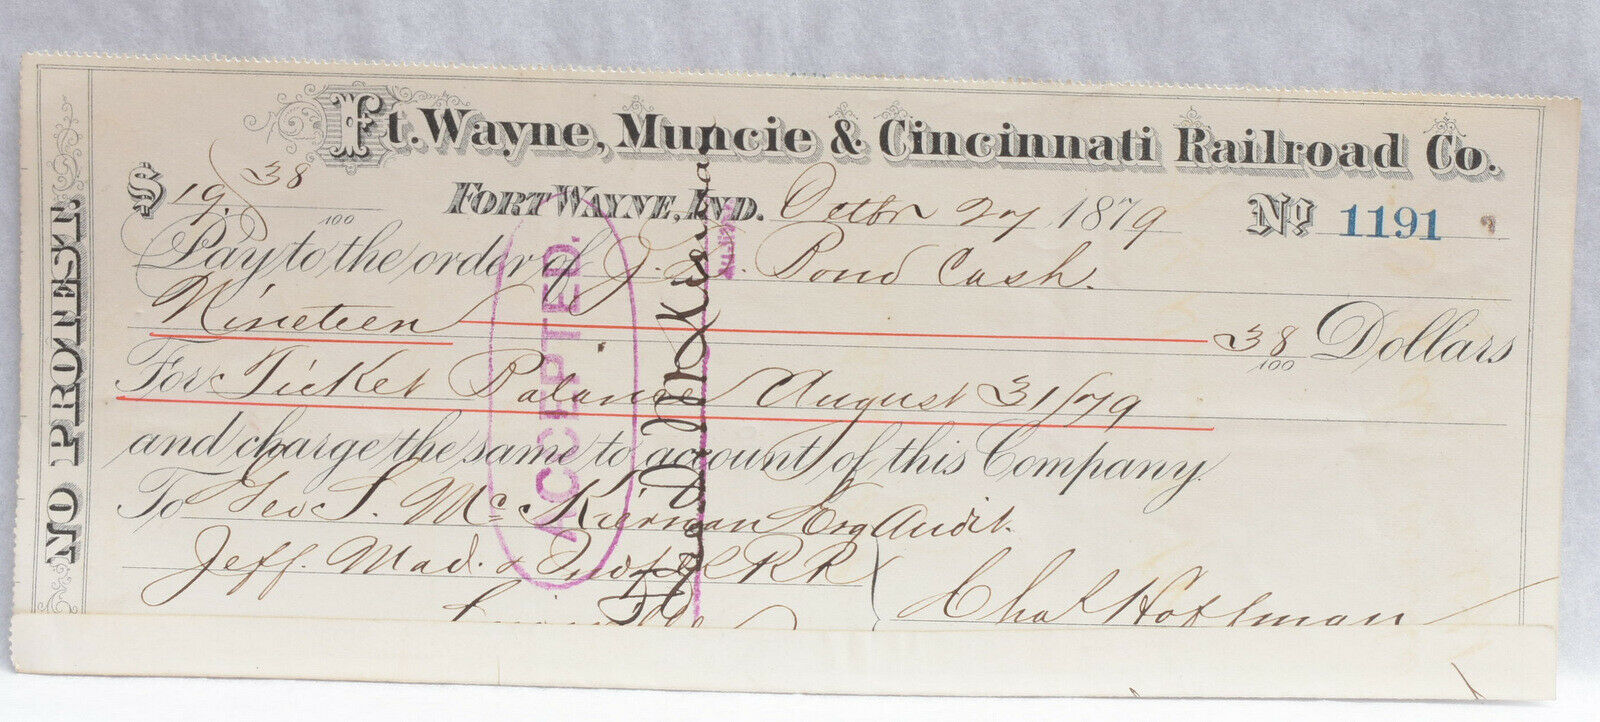 Ft. Wayne, Muncie & Cincinnati Railroad Co.
$ 19. 38/100 FORT WAYNE, IND. Octbr 27 1879 No 1191
Pay to the order of J. Pond Cash.
Nineteen 38/100 Dollars
For Ticket Balance August 31/79
and charge the same to account of this Company.
To Geo S. McKiernan Esq Audit.
Jeff. Mad. & Ind RR
Chas Hoffman
NO PROTEST.
ACCEPTED.
Geo S. McKiernan
Auditor